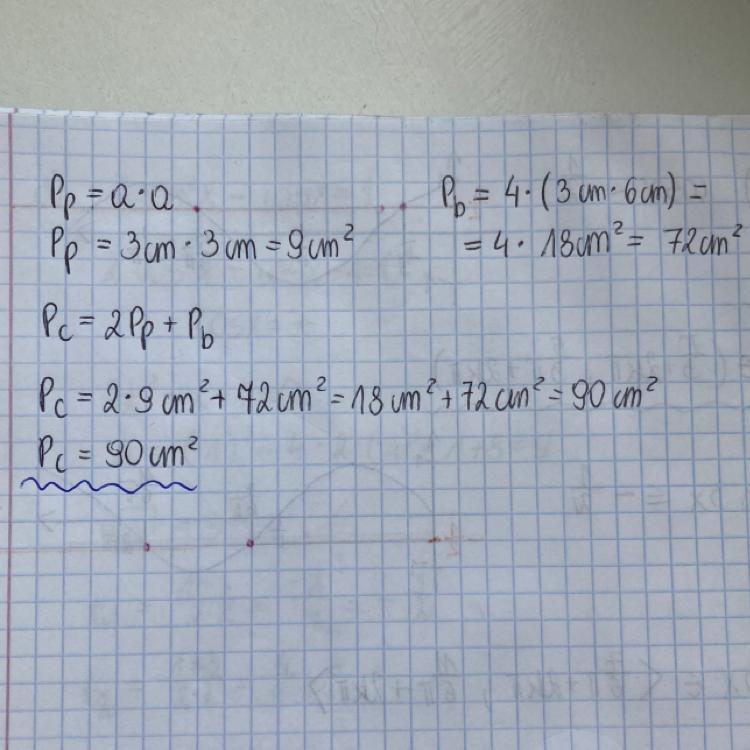 Pp = a·a
Pp = 3cm · 3cm = 9cm²
Pb = 4·(3cm·6cm) =
= 4· 18cm² = 72cm²
Pc = 2Pp + Pb
Pc = 2·9cm² + 72cm² = 18cm² + 72cm² = 90cm²
Pc = 90cm²